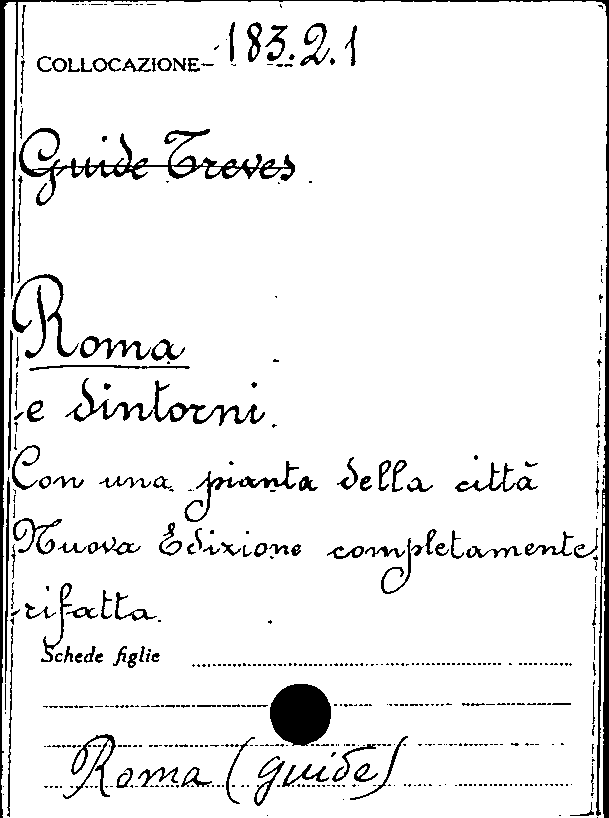 COLLOCAZIONE 183.2.1
Guide Treves
Roma
e dintorni.
Con una pianta della città
Nuova Edizione completamente
rifatta.
Schede figlie
Roma (guide)